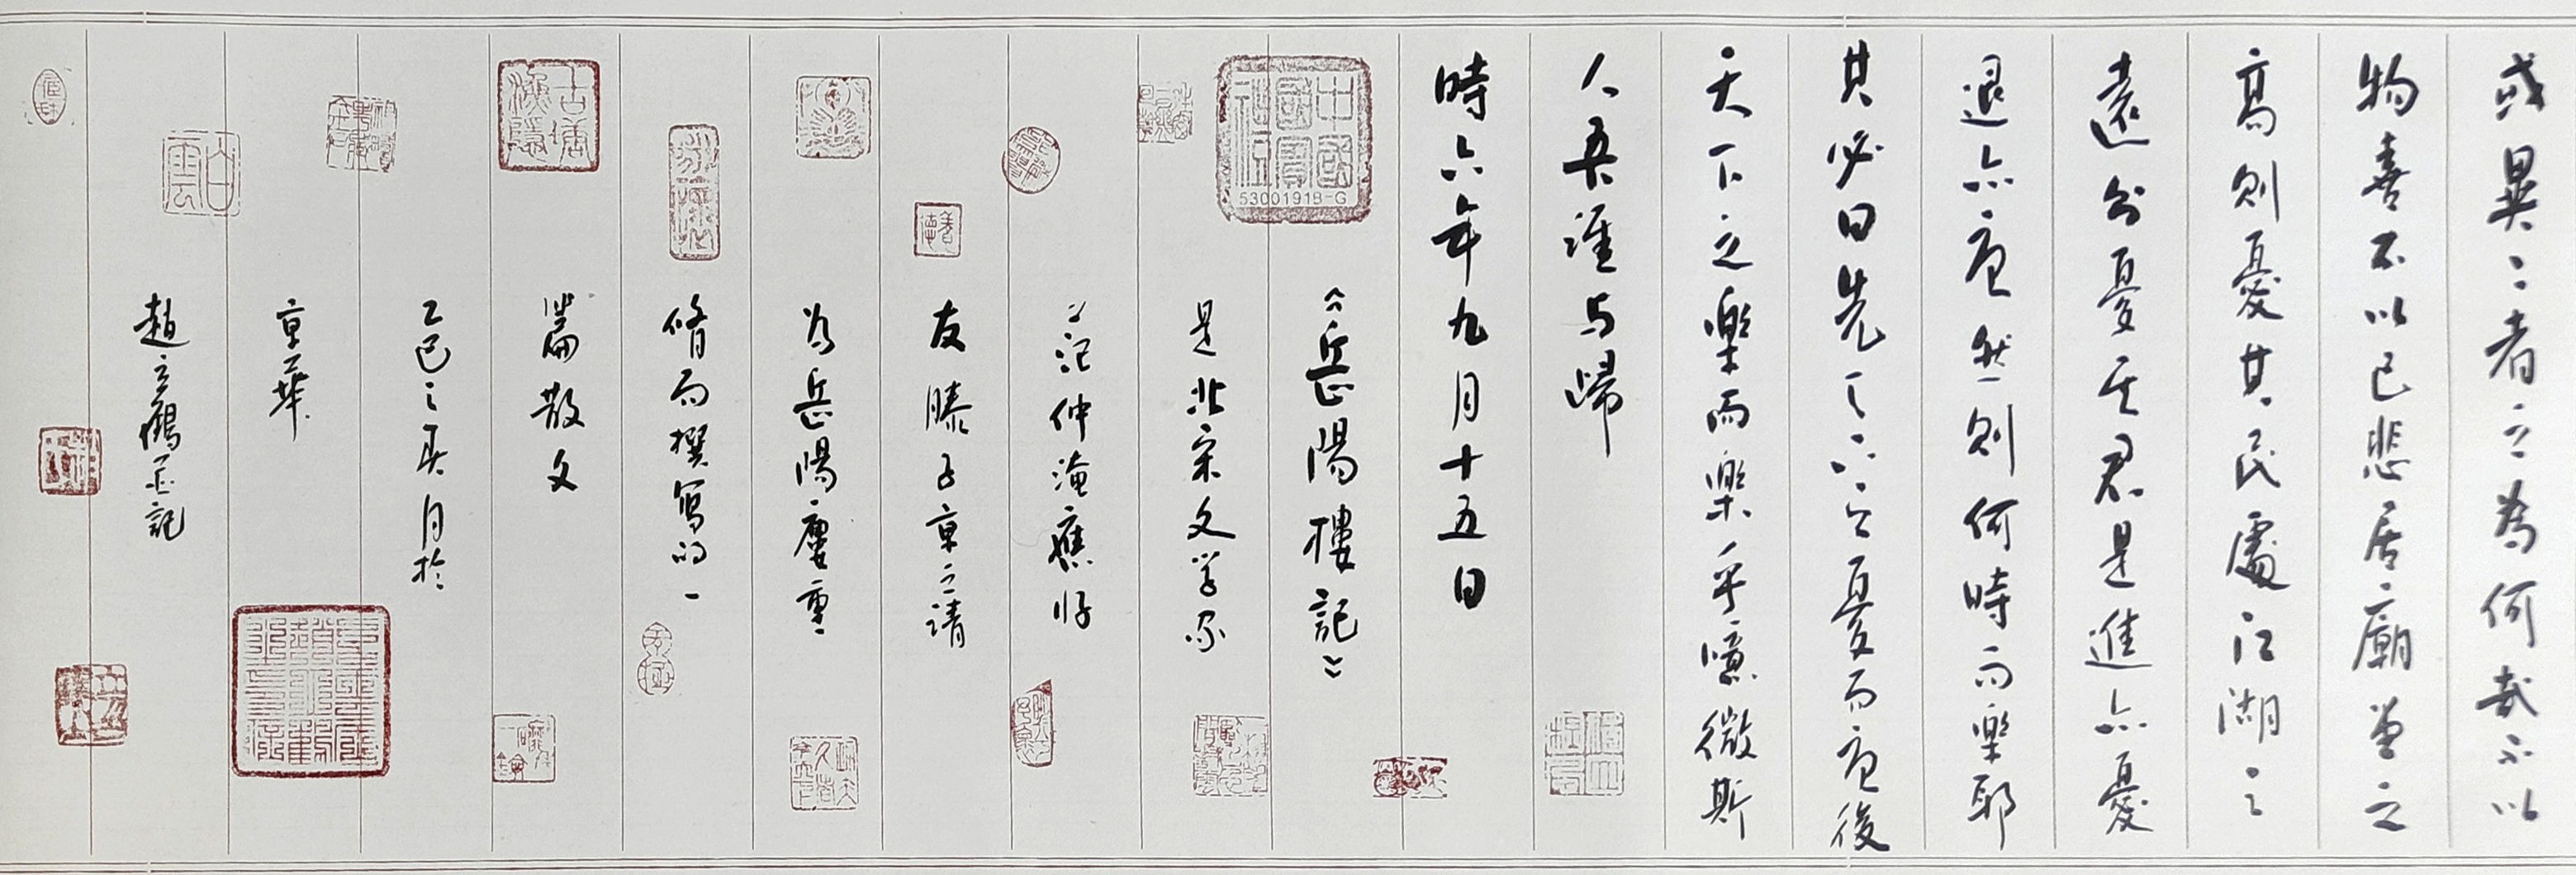 或異二者之為何哉不以
物喜不以己悲居廟堂之
高則憂其民處江湖之
遠則憂其君是進亦憂
退亦憂然則何時而樂耶
其必曰先天下之憂而憂後
天下之樂而樂乎噫微斯
人吾誰与歸
時六年九月十五日
《岳陽樓記》
是北宋文学家
范仲淹應好
友滕子京之请
为岳陽樓重
脩而撰寫的一
篇散文
乙巳之夏月於
京華
趙立鶴記
53001918-G
古塘漁隱